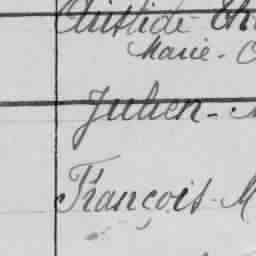 Aristide- Th
Marie-
Julien-
François- M